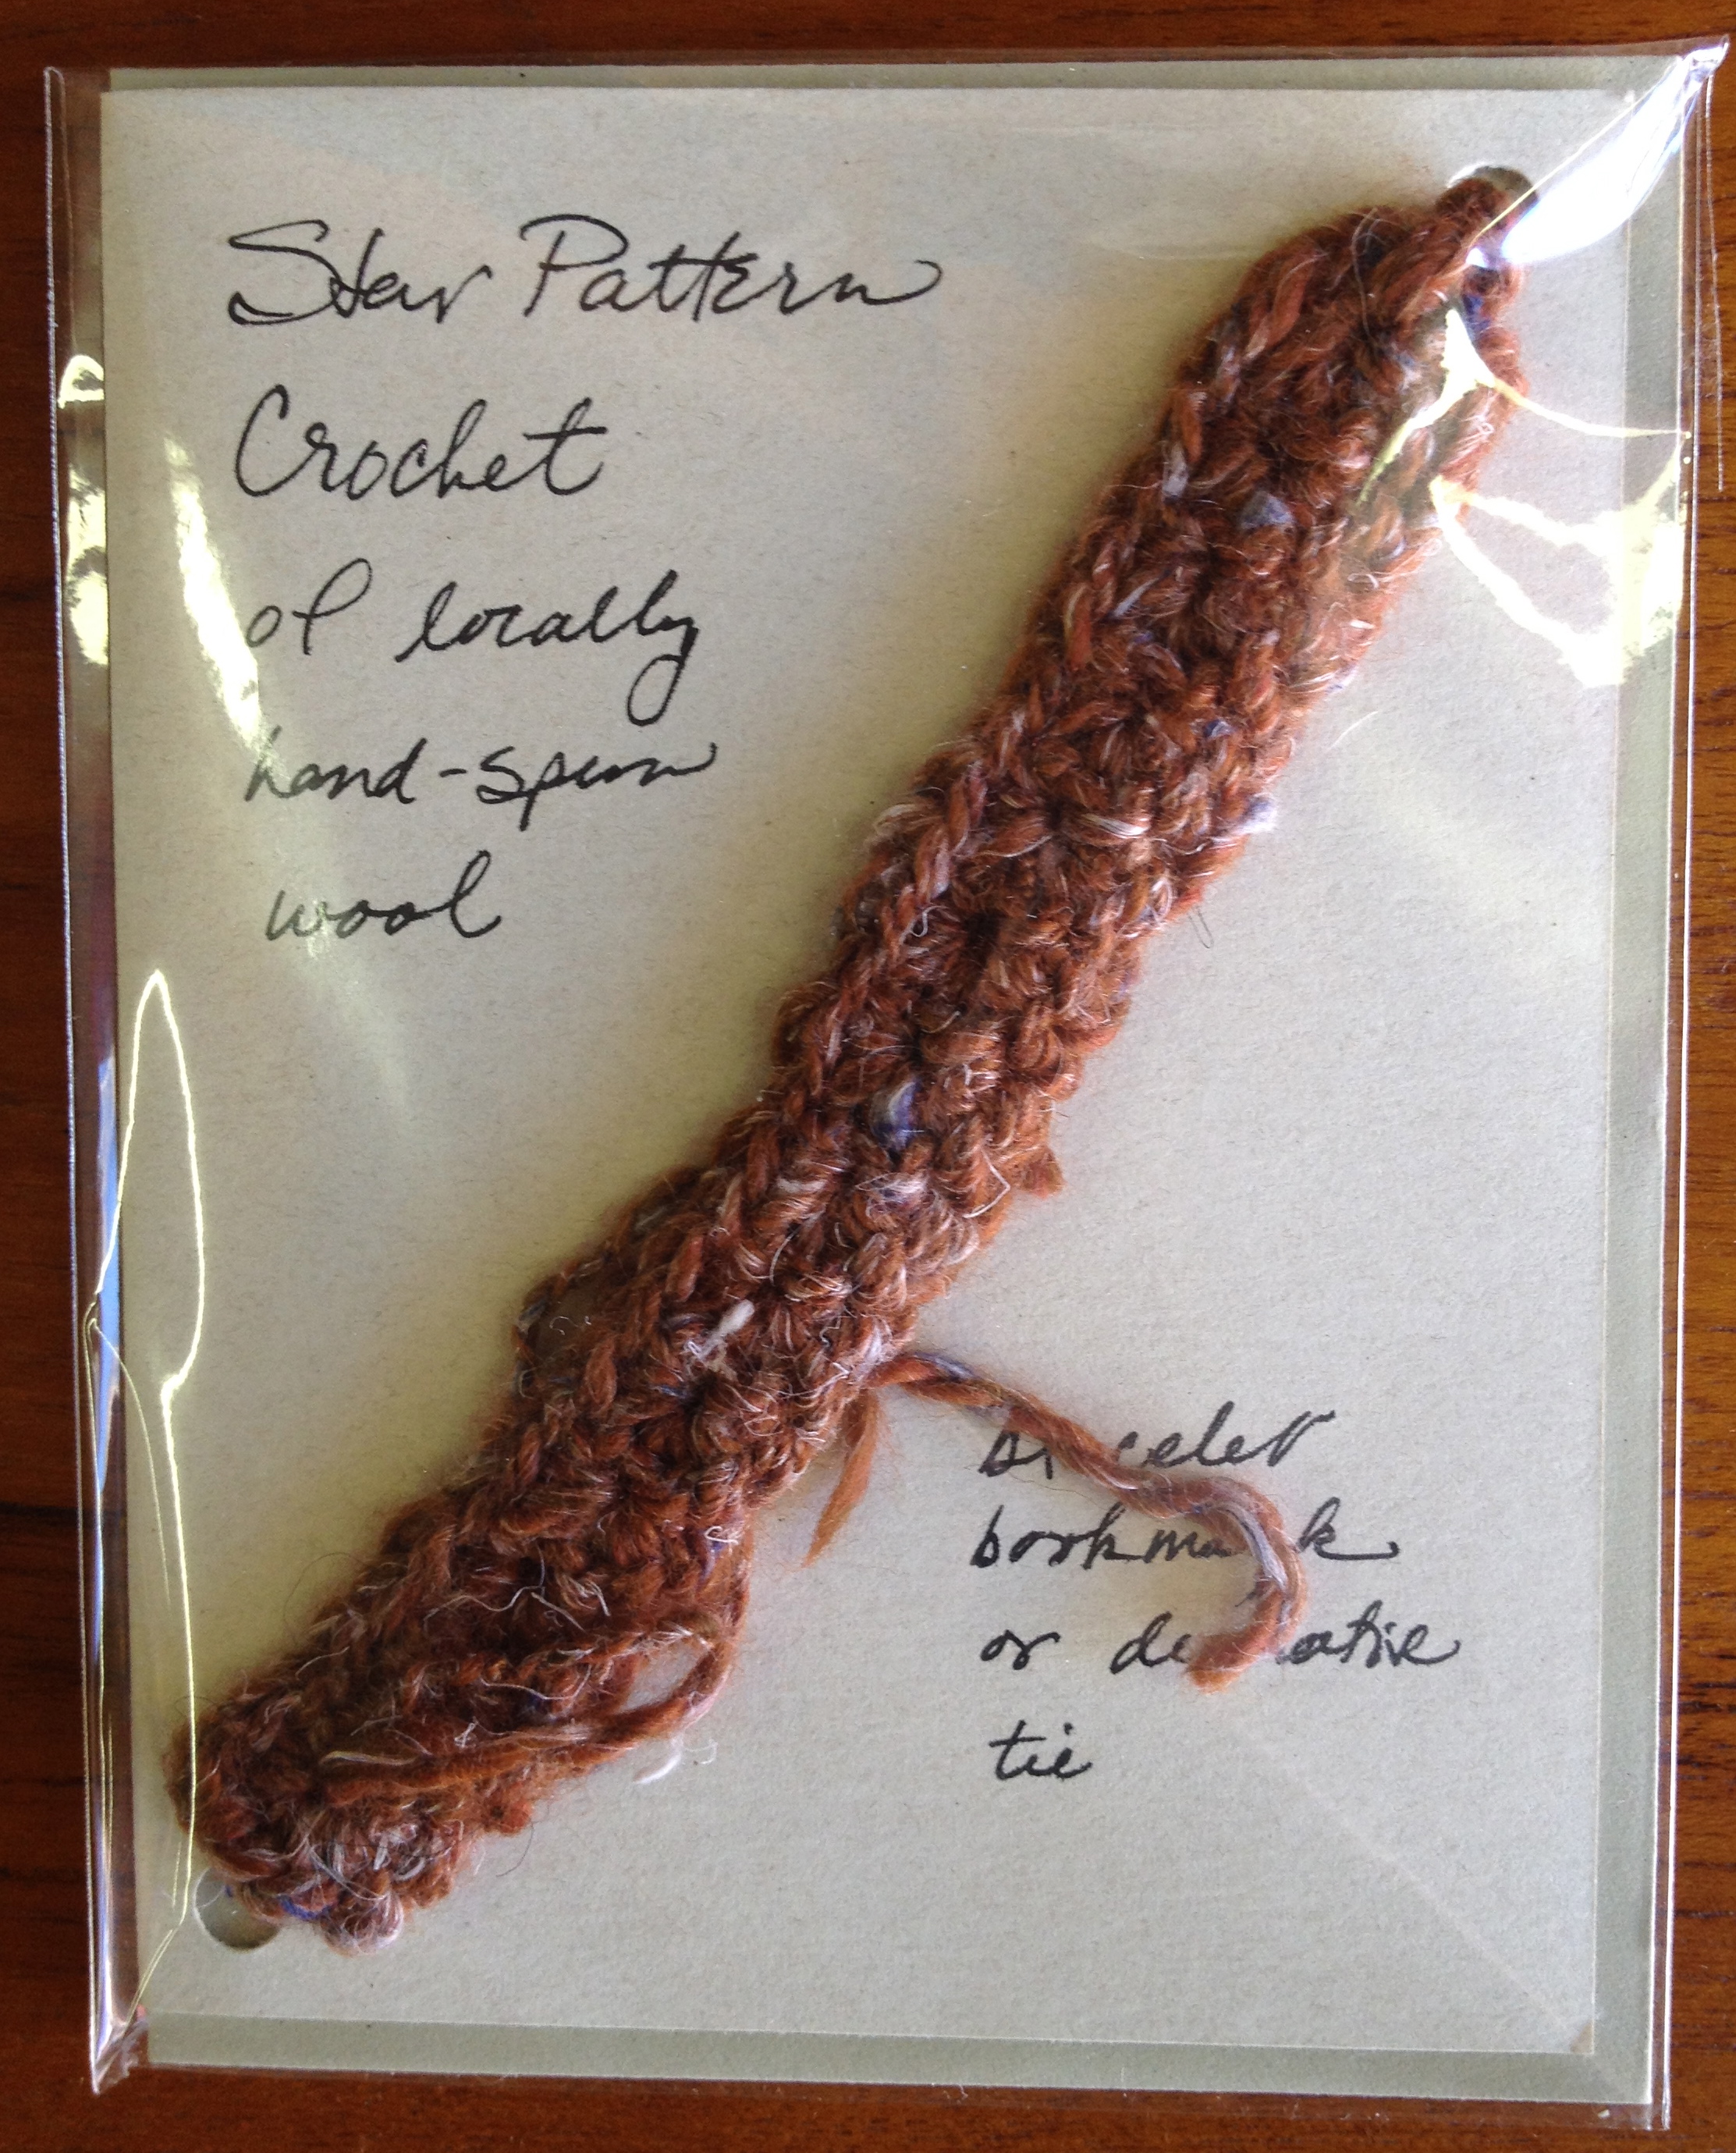 Star Pattern
Crochet
of locally
hand-spun
wool
bracelet
bookmark
or decorative
tie